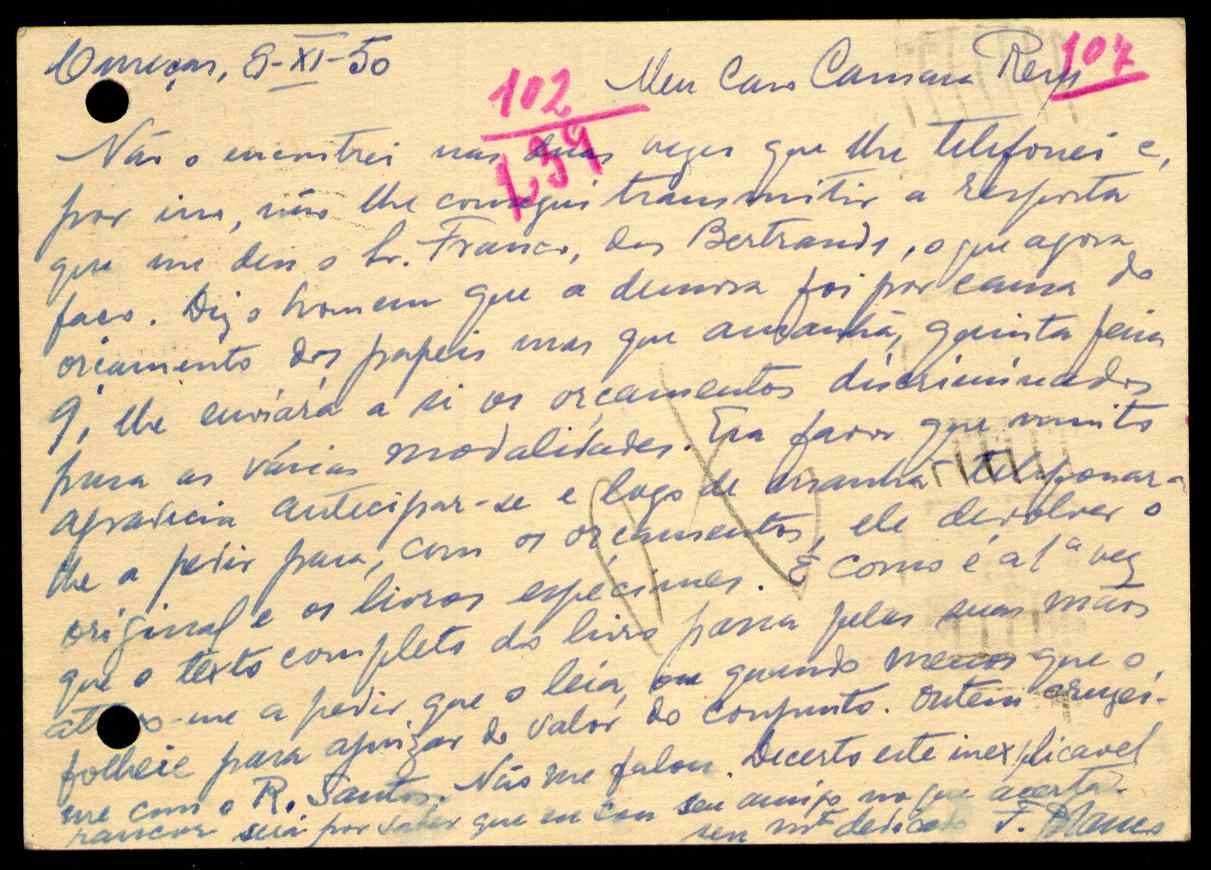 8-XI-50
102
139
107
Meu Caro Camara Reys
Não o encontrei nas duas vezes que lhe telefonei e,
por isso, não lhe consegui transmitir a resposta
que me deu o Sr. Franco, dos Bertrands, o que agora
faço. Diz o homem que a demora foi por causa do
orçamento dos papeis mas que amanhã, quinta feira
9, lhe enviará a si os orçamentos discriminados
para as várias modalidades. Era favor que muito
agradecia antecipar-se e logo de manhã telefonar-
lhe a pedir para, com os orçamentos, ele devolver o
original e os livros especimes. E como é a 1ª vez
que o texto completo do livro passa pelas suas mãos
atrevo-me a pedir que o leia, ou quando menos que o
folheie para ajuizar do valor do conjunto. Ontem cruzei-
me com o R. Santos. Não me falou. Decerto este inexplicavel
rancor será por saber que eu sou seu amigo no que acerta.
seu mtº dedicado F. Namora